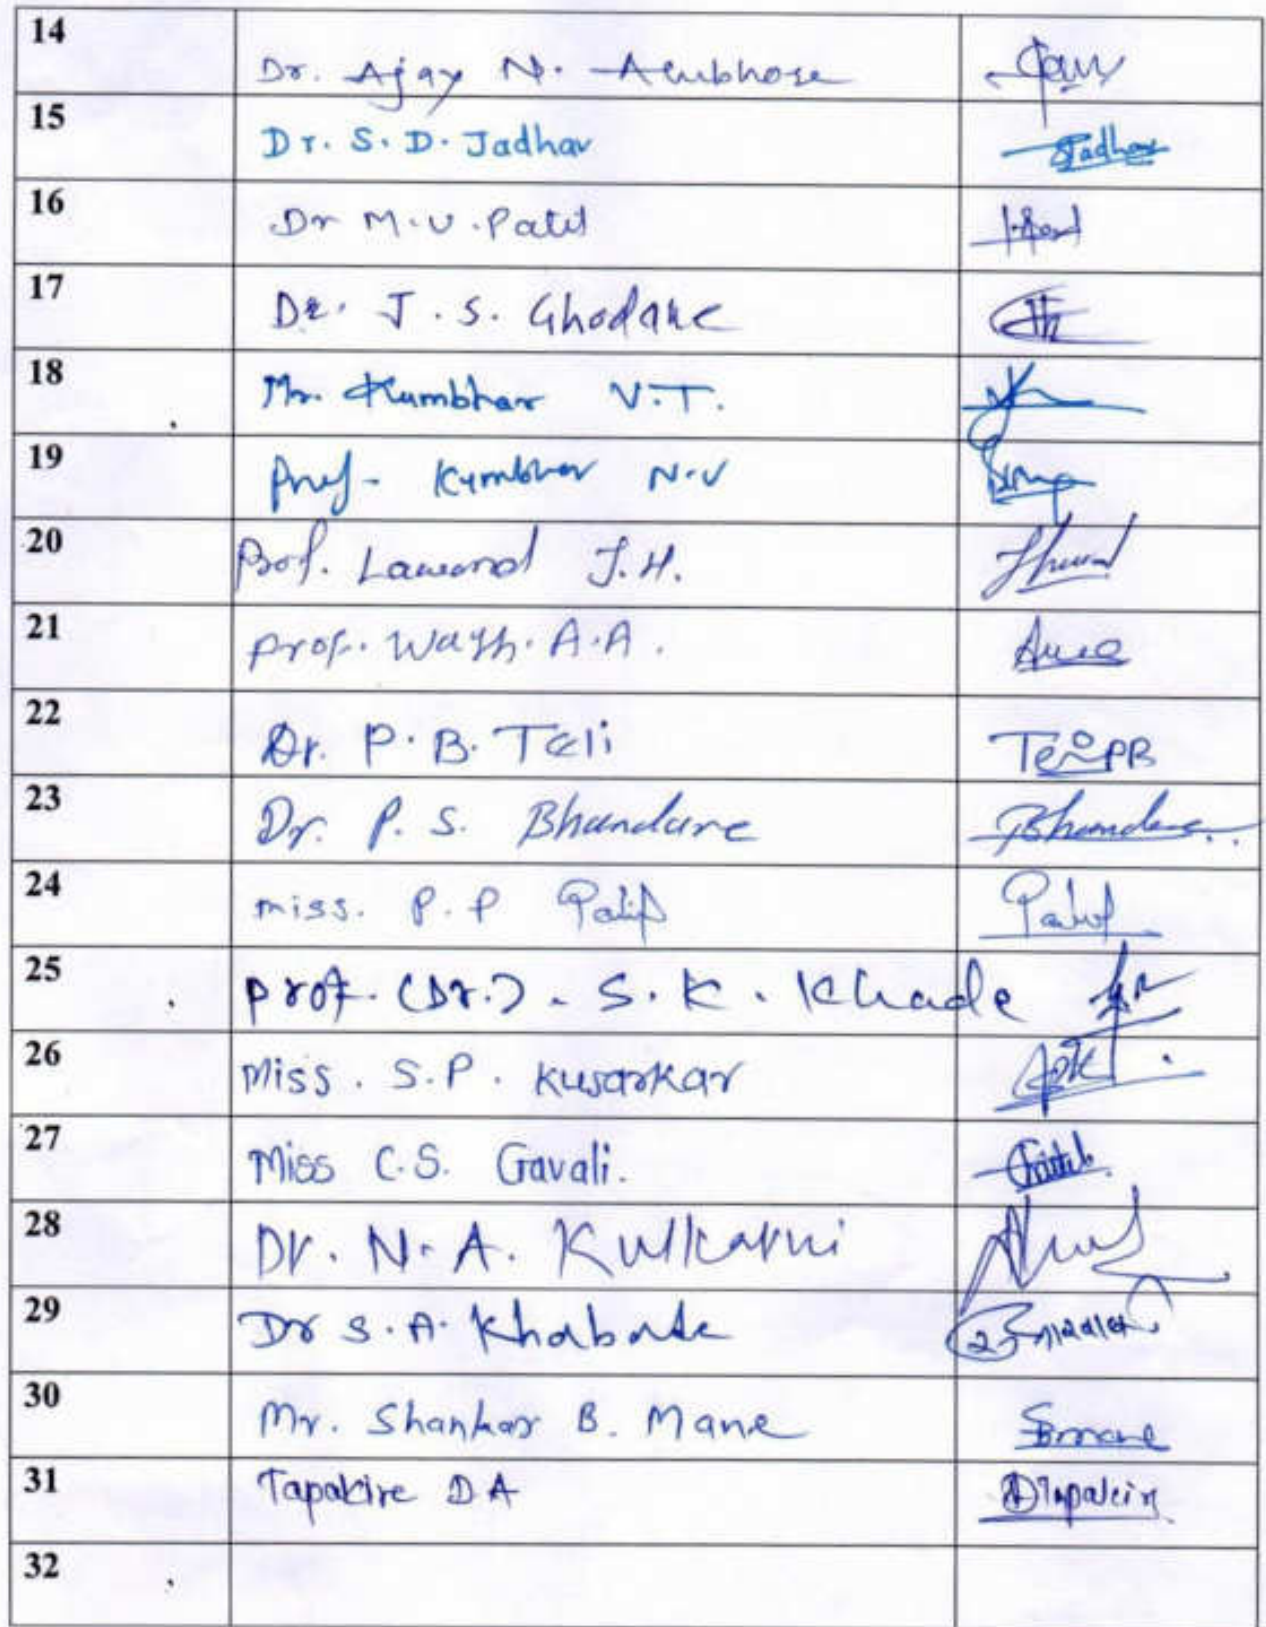 14 Dr. Ajay N. Ambhore
15 Dr. S. D. Jadhav Jadhav
16 Dr M.V. Patil
17 Dr. J. S. Ghodake
18 Mr. Kumbhar V.T.
19 Prof. Kumbhar N.V
20 Prof. Lawand J.H.
21 Prof. Wagh. A.A.
22 Dr. P. B. Teli Teli PB
23 Dr. P. S. Bhandare Bhandare
24 miss. P. P Patil Patil
25 Prof. (Dr.). S. K. Khade
26 Miss. S.P. Kusarkar
27 Miss C.S. Gavali.
28 Dr. N. A. Kulkarni
29 Dr S. A. Khabade
30 Mr. Shankar B. Mane SBMane
31 Tapakire D A DTapakire
32